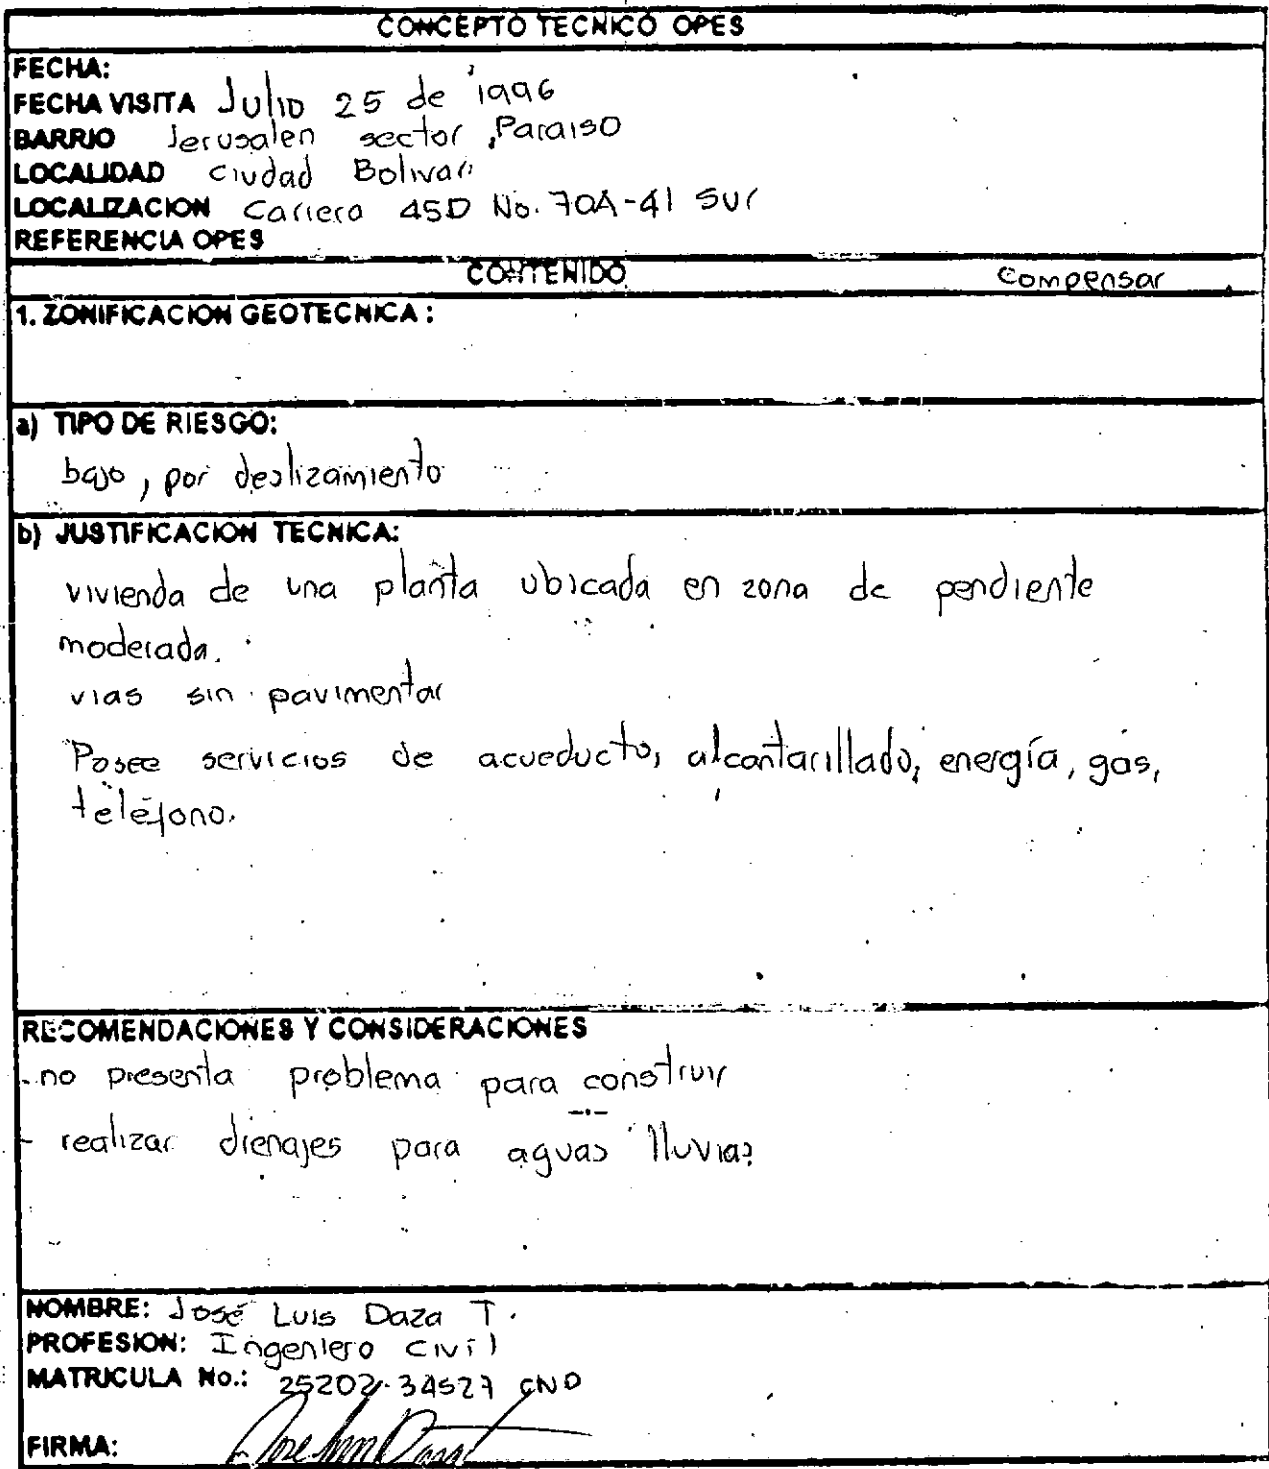 CONCEPTO TECNICO OPES
FECHA:
FECHA VISITA Julio 25 de 1996
BARRIO Jerusalen sector Paraiso
LOCALIDAD Ciudad Bolivar
LOCALIZACION Carrera 45D No. 70A-41 Sur
REFERENCIA OPES
CONTENIDO Compensar
1. ZONIFICACION GEOTECNICA :
a) TIPO DE RIESGO:
bajo, por deslizamiento
b) JUSTIFICACION TECNICA:
vivienda de una planta ubicada en zona de pendiente
moderada.
vias sin pavimentar
Posee servicios de acueducto, alcantarillado, energía, gas,
teléfono.
RECOMENDACIONES Y CONSIDERACIONES
- no presenta problema para construir
- realizar drenajes para aguas lluvias
NOMBRE: José Luis Daza T.
PROFESION: Ingeniero civil
MATRICULA No.: 25202-34527 CND
FIRMA: